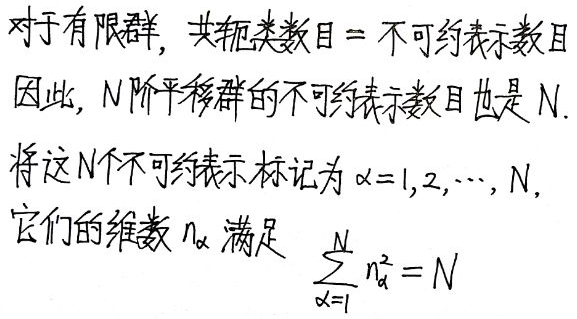 对于有限群, 共轭类数目 = 不可约表示数目
因此, N阶平移群的不可约表示数目也是 N.
将这N个不可约表示标记为 α=1,2,⋯, N,
它们的维数 n_α 满足 \sum_{α=1}^{N} n_α^2 = N